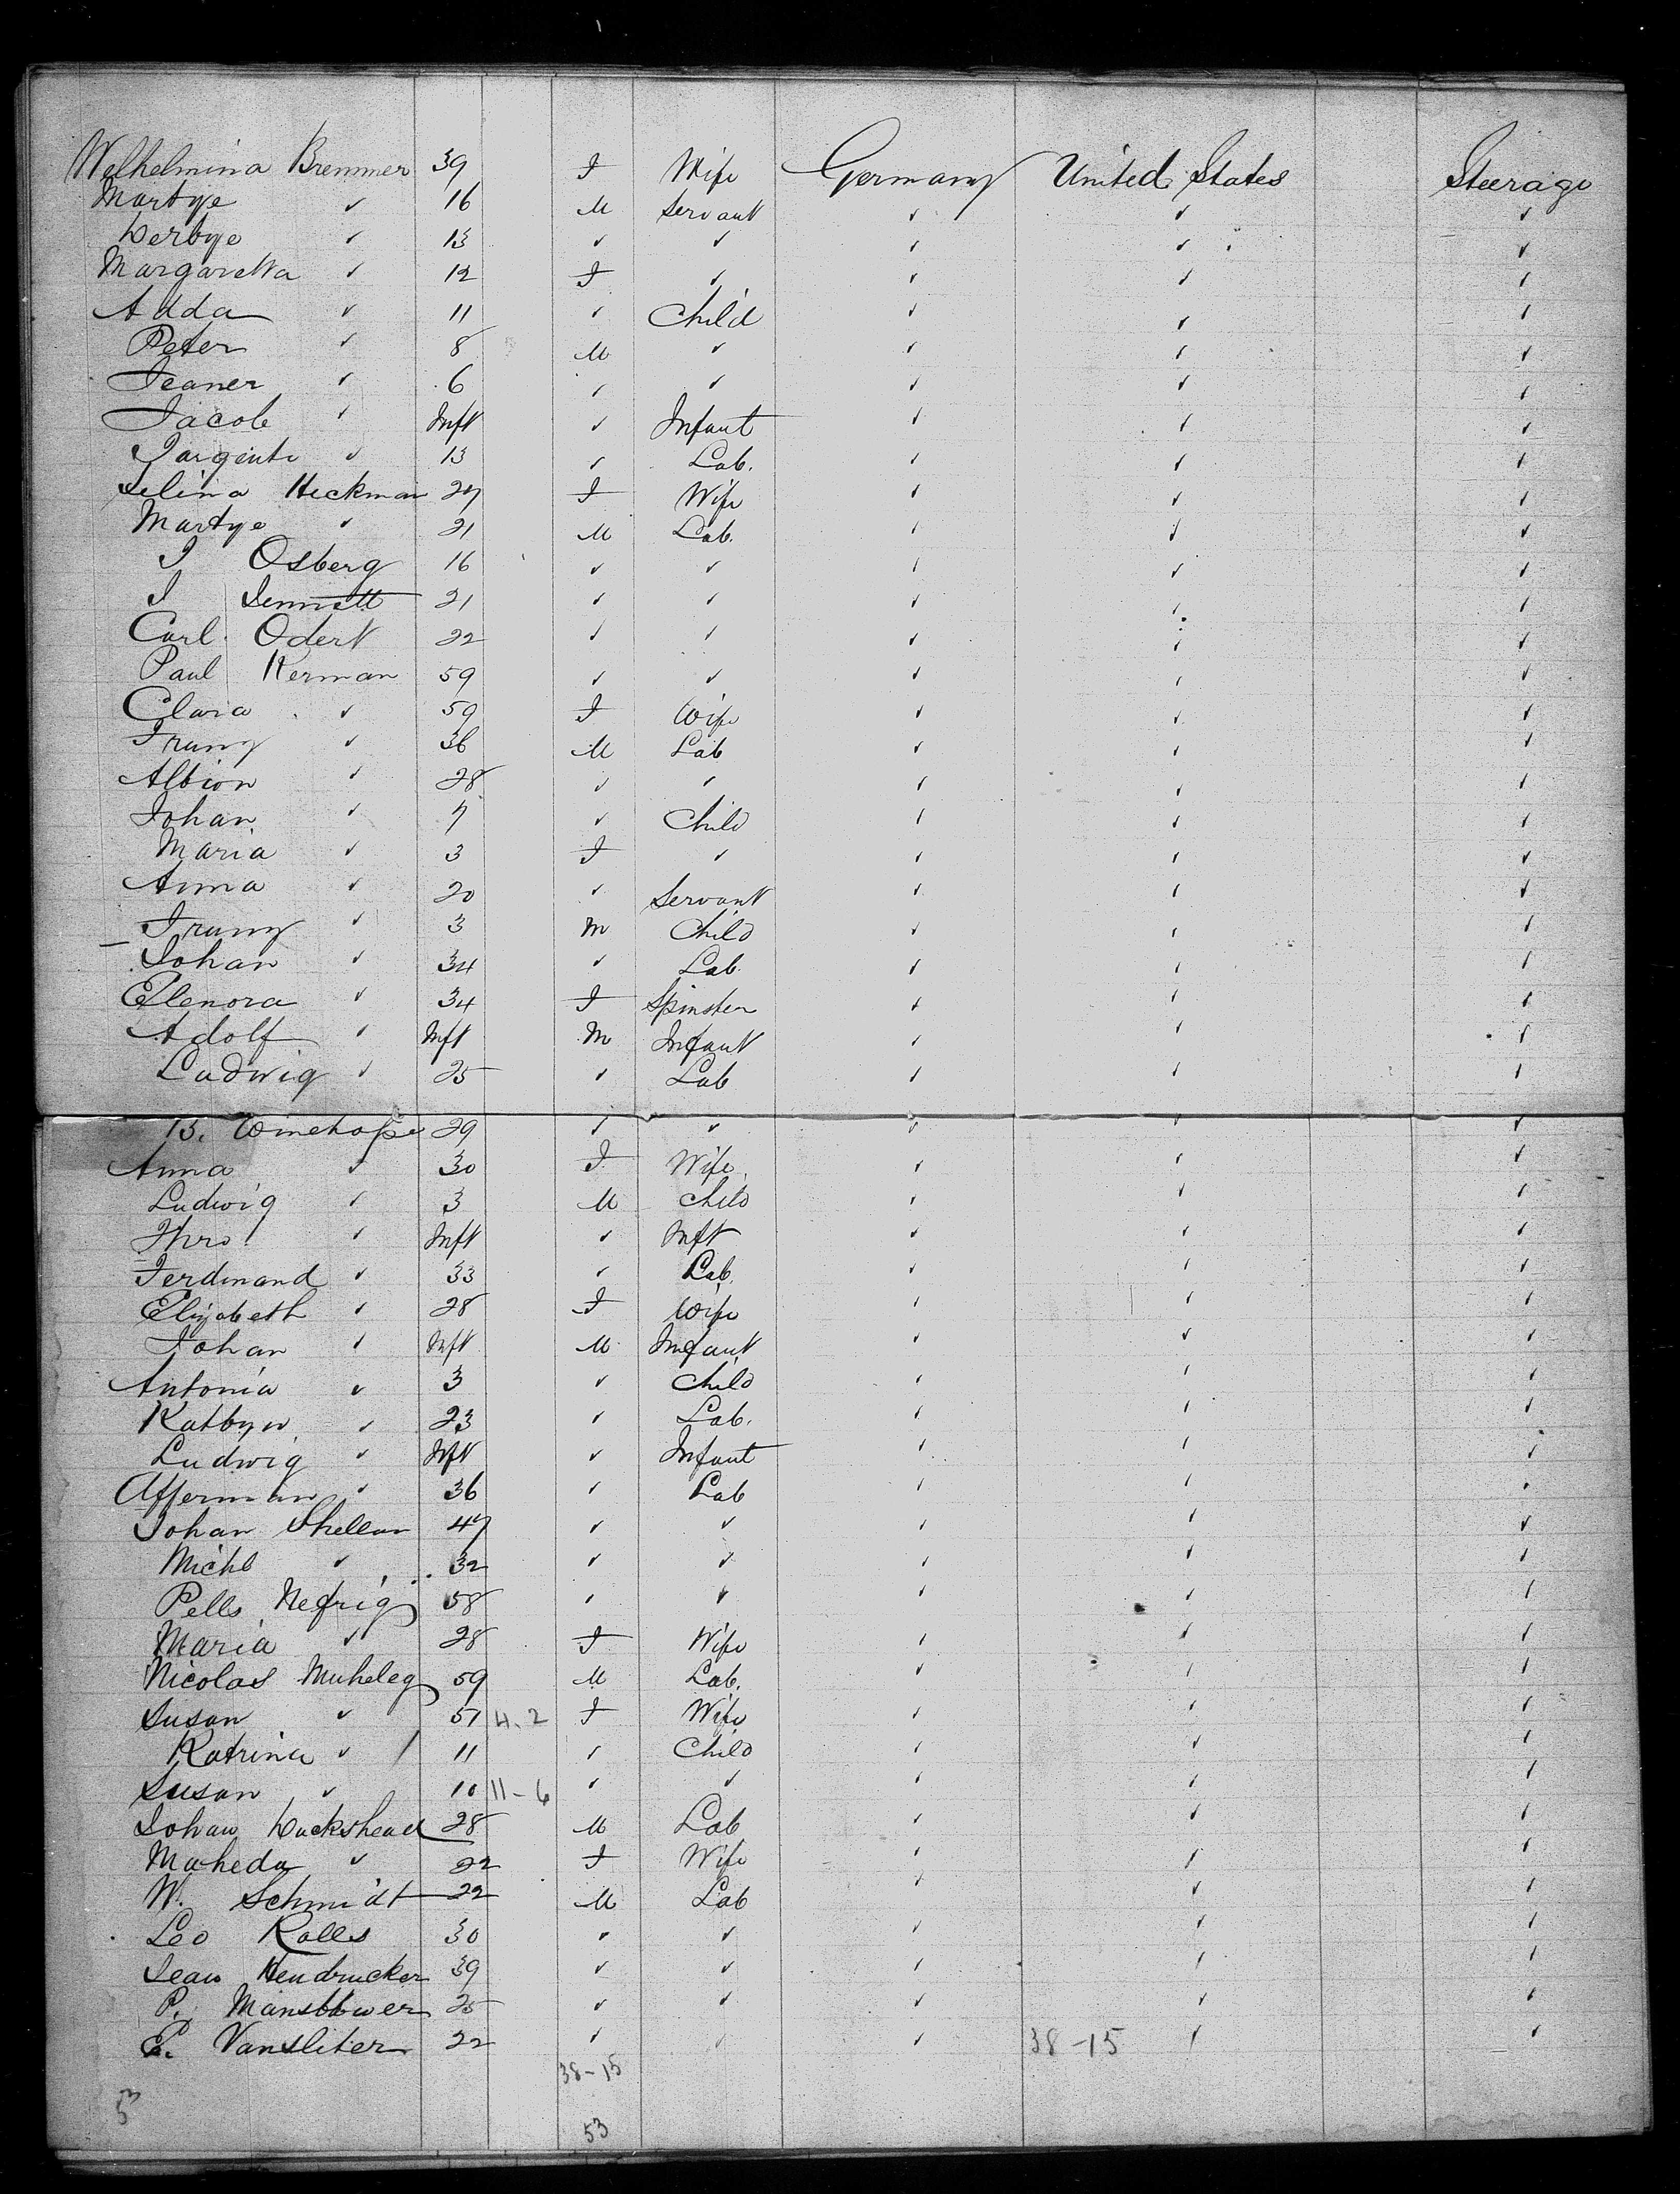 Welhelmina Bremmer 39 F Wife Germany United States Steerage
Martye ✓ 16 M Servant ✓ ✓ ✓
Derbye ✓ 13 ✓ ✓ ✓ ✓ ✓
Margaretta ✓ 12 F ✓ ✓ ✓ ✓
Adda ✓ 11 ✓ Child ✓ ✓ ✓
Peter ✓ 8 M ✓ ✓ ✓ ✓
Jeaner ✓ 6 ✓ ✓ ✓ ✓ ✓
Jacob ✓ Inft ✓ Infant ✓ ✓ ✓
Jargente ✓ 13 ✓ Lab. ✓ ✓ ✓
Selina Heckman 27 F Wife ✓ ✓ ✓
Martye ✓ 21 M Lab. ✓ ✓ ✓
J Osberg 16 ✓ ✓ ✓ ✓ ✓
J Sennett 21 ✓ ✓ ✓ ✓ ✓
Carl Odert 22 ✓ ✓ ✓ ✓ ✓
Paul Kerman 59 ✓ ✓ ✓ ✓ ✓
Clara ✓ 59 F Wife ✓ ✓ ✓
Franz ✓ 36 M Lab ✓ ✓ ✓
Albion ✓ 28 ✓ ✓ ✓ ✓ ✓
Johan ✓ 7 ✓ Child ✓ ✓ ✓
Maria ✓ 3 F ✓ ✓ ✓ ✓
Anna ✓ 20 ✓ Servant ✓ ✓ ✓
Franz ✓ 3 M Child ✓ ✓ ✓
Johan ✓ 34 ✓ Lab. ✓ ✓ ✓
Elenora ✓ 34 F Spinster ✓ ✓ ✓
Adolf ✓ Inft M Infant ✓ ✓ ✓
Ludwig ✓ 25 ✓ Lab ✓ ✓ ✓
B. 29 ✓ ✓ ✓ ✓ ✓
Anna ✓ 30 F Wife ✓ ✓ ✓
Ludwig ✓ 3 M Child ✓ ✓ ✓
✓ Inft ✓ Inft ✓ ✓ ✓
Ferdinand ✓ 33 ✓ Lab. ✓ ✓ ✓
Elizabeth ✓ 28 F Wife ✓ ✓ ✓
Johan ✓ Inft M Infant ✓ ✓ ✓
Antonia ✓ 3 ✓ Child ✓ ✓ ✓
✓ 23 ✓ Lab. ✓ ✓ ✓
Ludwig ✓ Inft ✓ Infant ✓ ✓ ✓
Afferman ✓ 36 ✓ Lab ✓ ✓ ✓
Johan Shellan 47 ✓ ✓ ✓ ✓ ✓
Michl ✓ 32 ✓ ✓ ✓ ✓ ✓
Pells Nefrig 58 ✓ ✓ ✓ ✓ ✓
Maria ✓ 28 F Wife ✓ ✓ ✓
Nicolas Muheleg 59 M Lab. ✓ ✓ ✓
Susan ✓ 51 4-2 F Wife ✓ ✓ ✓
Katrina ✓ 11 ✓ Child ✓ ✓ ✓
Susan ✓ 10 11-6 ✓ ✓ ✓ ✓ ✓
Johan Duckshead 28 M Lab ✓ ✓ ✓
Maheda ✓ 22 F Wife ✓ ✓ ✓
W. Schmidt 22 M Lab ✓ ✓ ✓
Leo Rolles 30 ✓ ✓ ✓ ✓ ✓
Jean Hendrucker 39 ✓ ✓ ✓ ✓ ✓
P. 25 ✓ ✓ ✓ ✓ ✓
E. Vansliter 22 ✓ ✓ ✓ 38-15 ✓ ✓
38-15
53
53